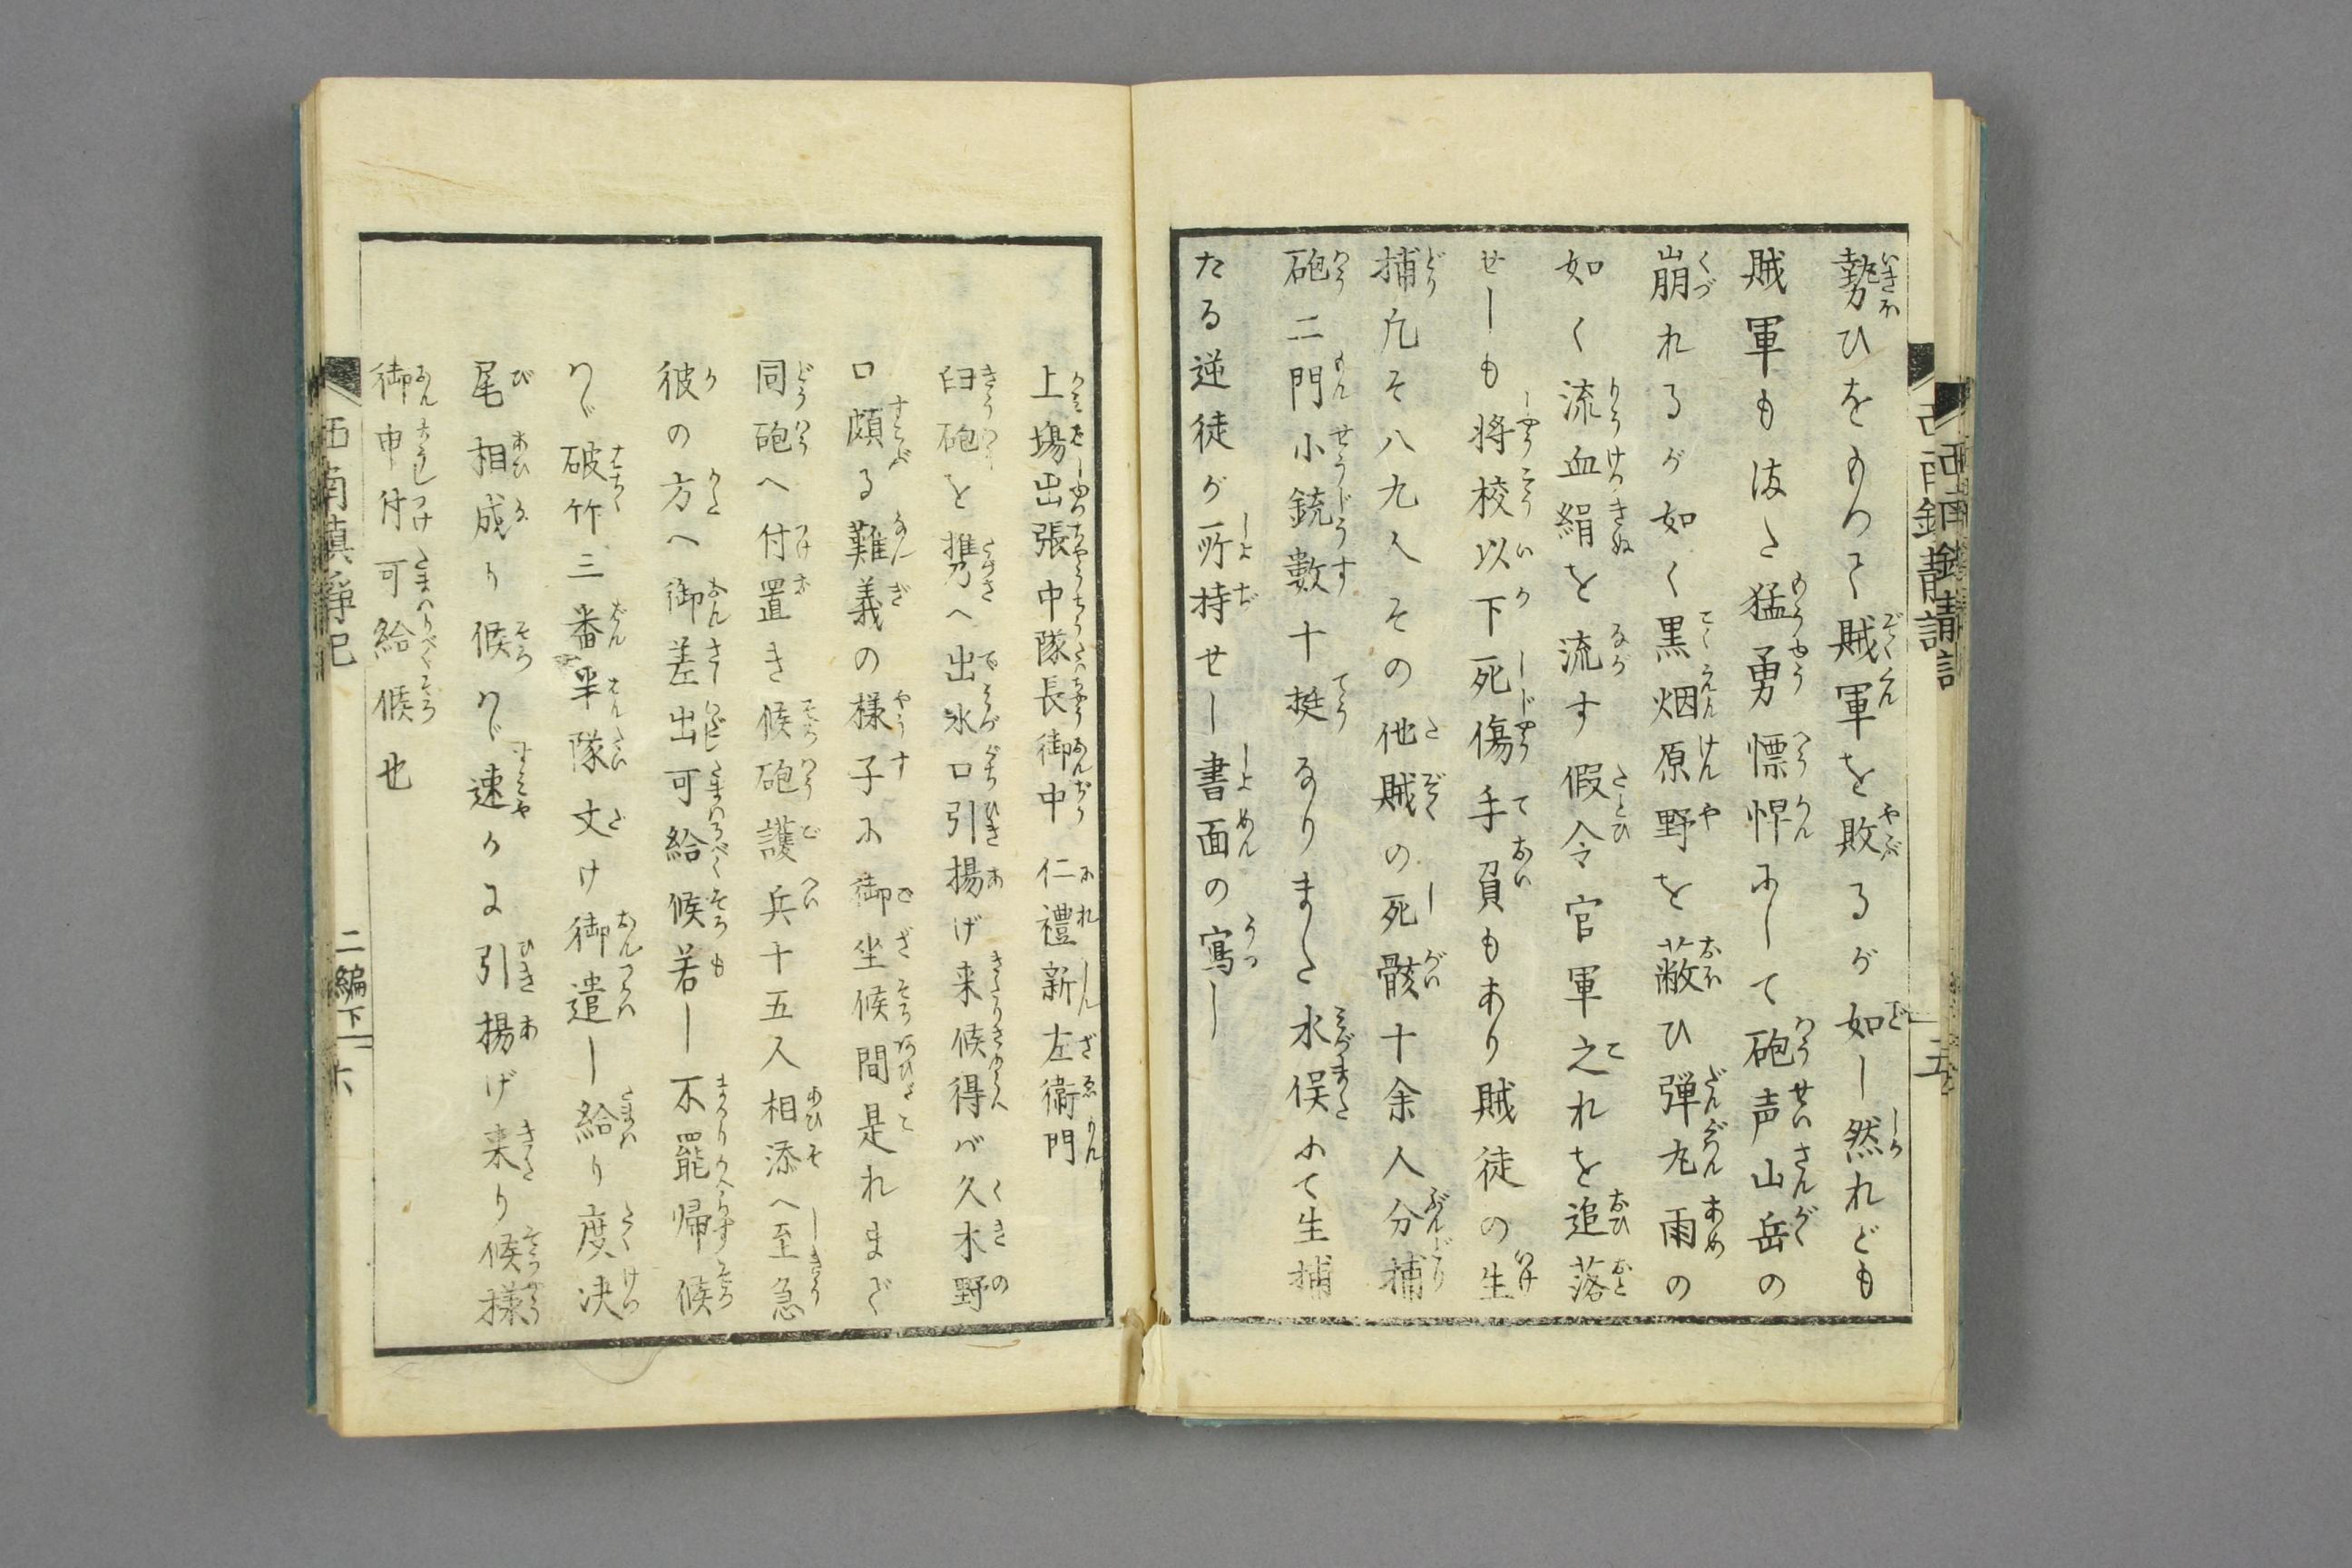 勢ひをもつて賊軍を敗るが如し然れども
賊軍もまた猛勇慓悍にして砲声山岳の
崩れるが如く黒烟原野を蔽ひ弾丸雨の
如く流血絹を流す假令官軍之れを追落
せしも将校以下死傷手負もあり賊徒の生
捕凡そ八九人その他賊の死骸十余人分捕
砲二門小銃數十挺なりまた水俣にて生捕
たる逆徒が所持せし書面の寫し
上塲出張中隊長御中 仁禮新左衛門
臼砲を携へ出氷口引揚げ来候得バ久木野
口頗る難義の様子に御坐候間是れまで
同砲へ付置き候砲護兵十五人相添へ至急
彼の方へ御差出可給候若し不罷帰候
はゞ破竹三番半隊丈け御遣し給り度决
尾相成り候はゞ速かに引揚げ来り候様
御申付可給候也
二編下 六